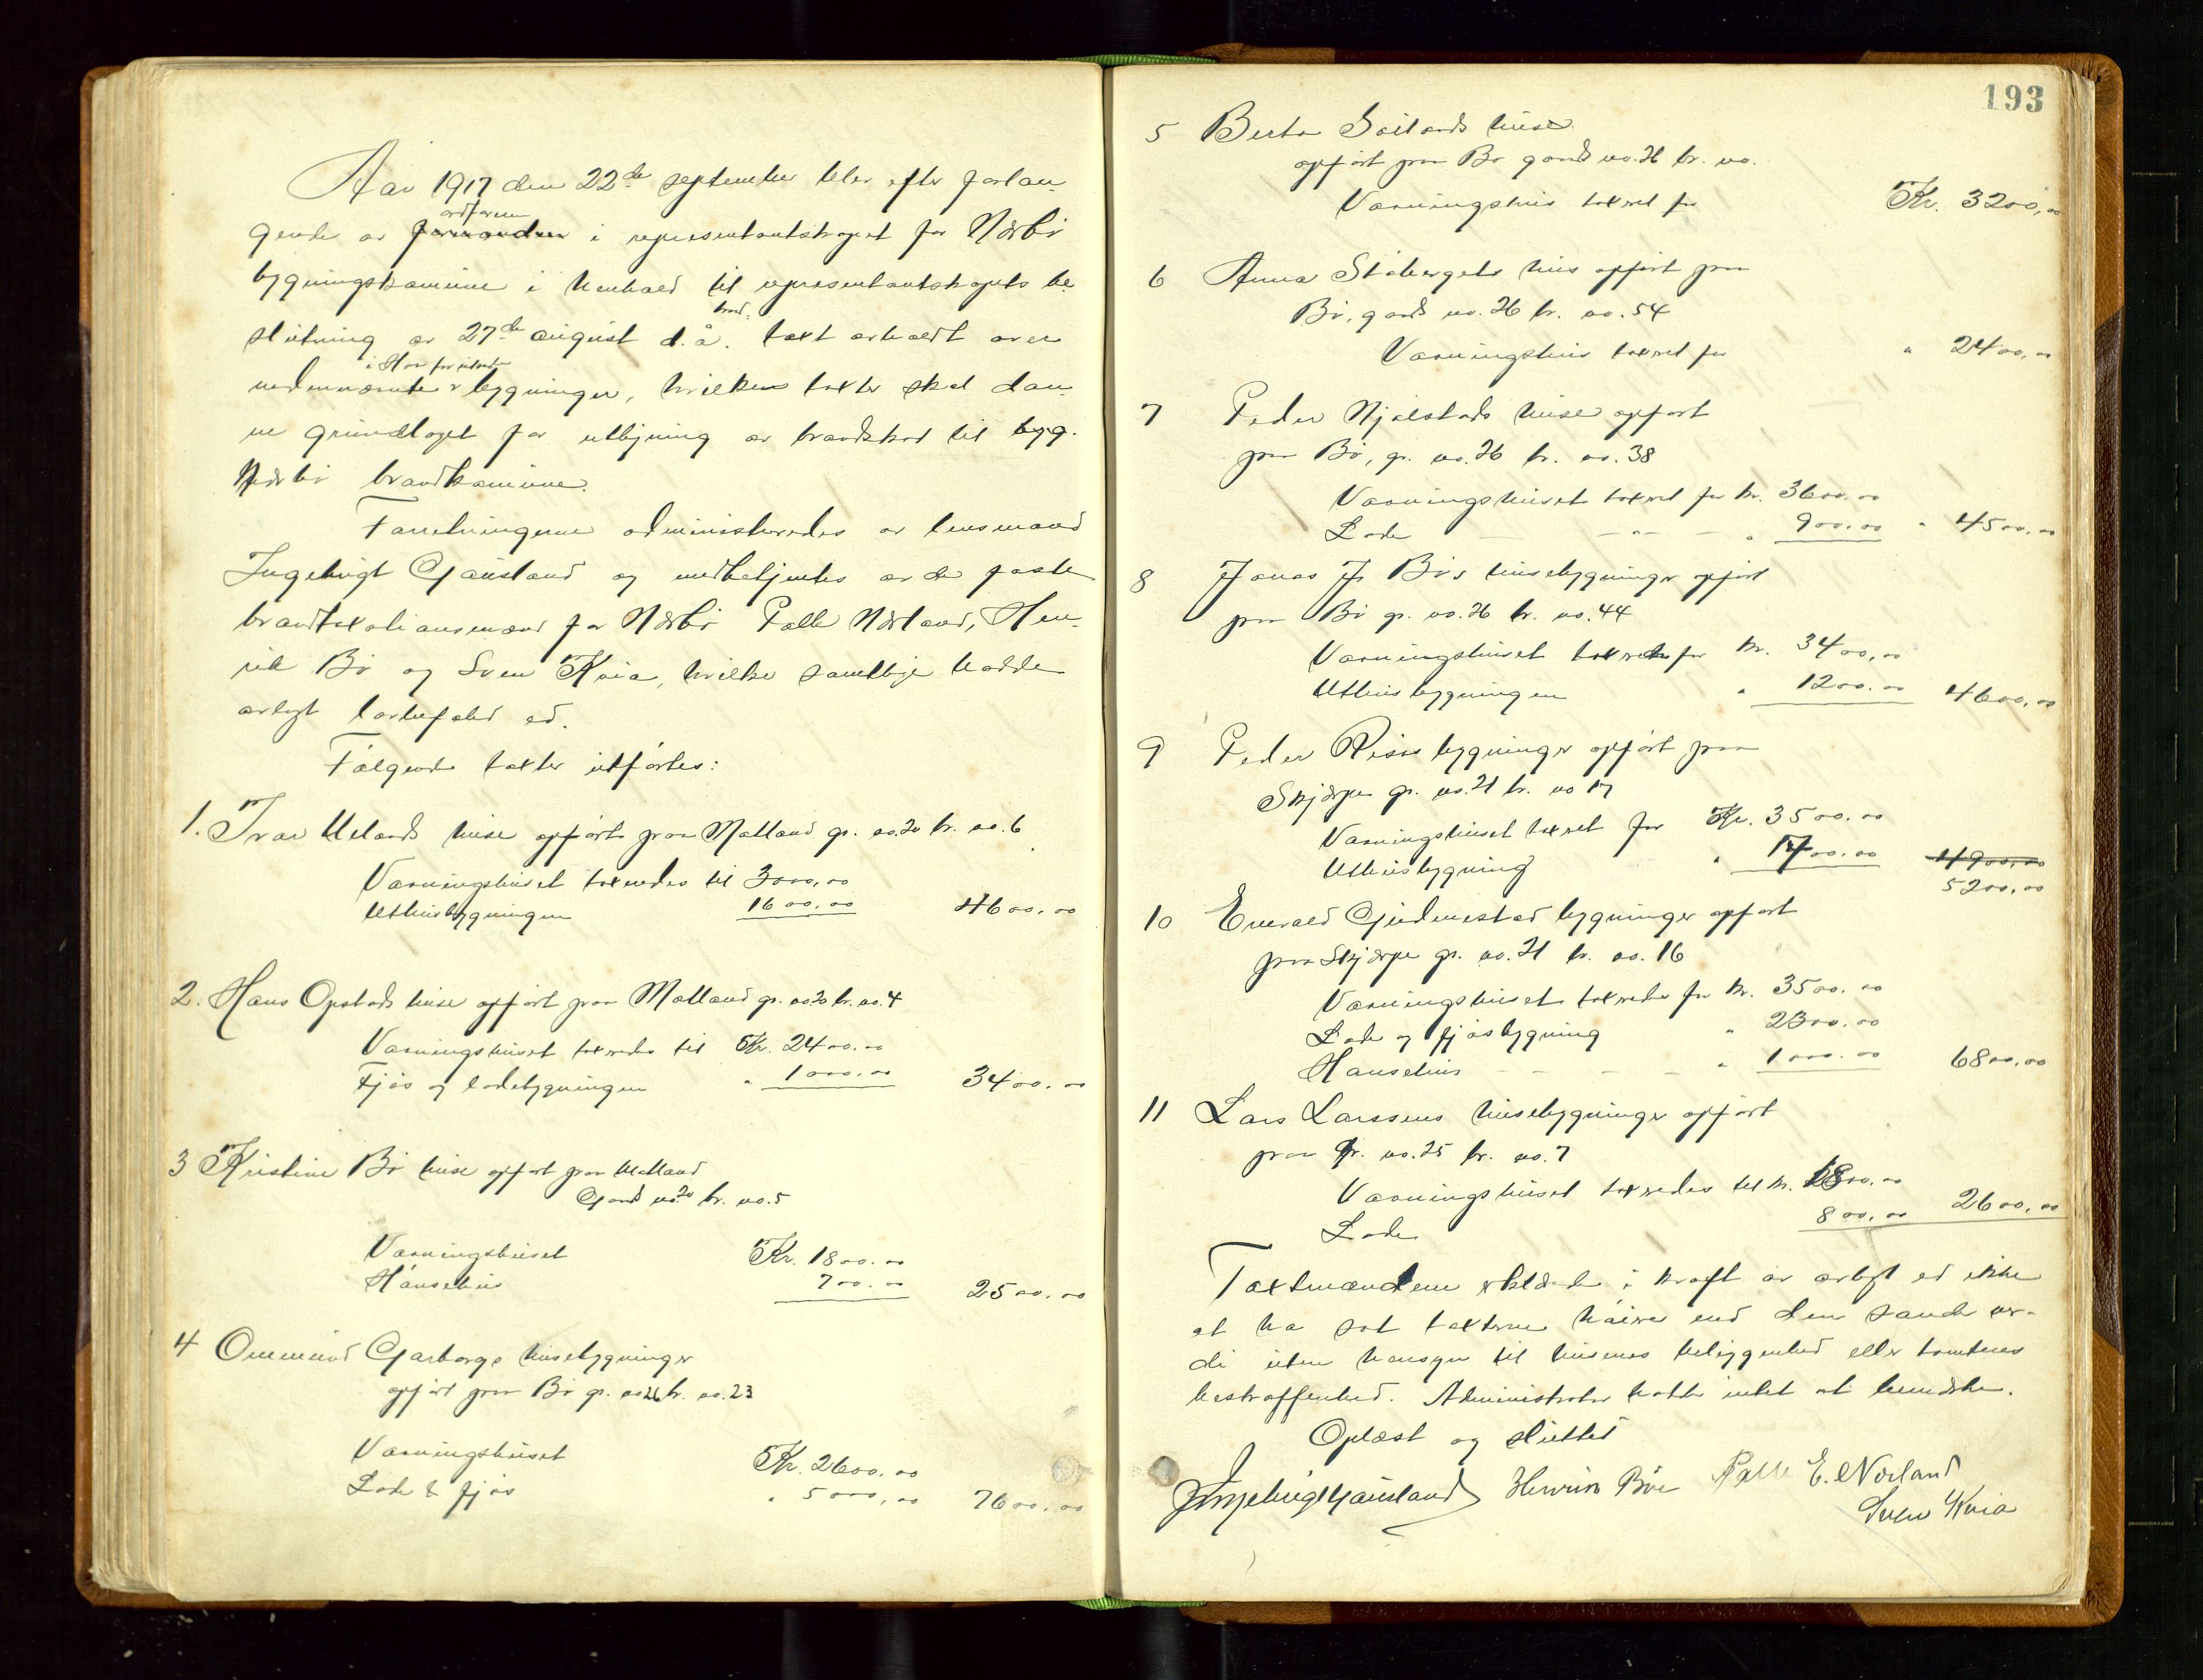 Aar 1917 den 22de september blev efter forlan-
gende av formanden ordføreren i representantskapet for Nærbø
bygningskommune i henhold til representantskapets be-
slutning av 27de august d.å. brand- takst avholdt over
nedennævnte i Haa forutenfor bygninger, hvilken takster skal dan-
ne grundlaget for utligning av brandskat til byg.
Nærbø brandkommune.
Forretningerne administreredes av lensmand
Ingebrigt Gausland og medbetjentes av de faste
brandtakstmænd for Nærbø Palle Nærland, Hen-
rik Bø og Sven Kvia, hvilke samtlige hadde
avlagt lovbefalet ed.
Følgende takster utførtes:
1. Ivar Uelands huse opført paa Motland gr. no. 20 br. no. 6
Vaaningshuset takseredes til 3000,00
Uthusbygningen 1600,00 4600.00
2. Hans Opstads huse opført paa Motland gr. no 20 br. no. 4
Vaaningshuset takseredes til Kr. 2400.00
Fjøs og ladebygningen " 1000.00 3400.00
3 Kristine Bø huse opført paa Motland
Gaards no 20 br. no. 5
Vaaningshuset Kr. 1800.00
Hønsehus 700.00 2500.00
4 Ommund Garborgs husebygninger
opført paa Bø gr. no 26 br. no. 23
Vaaningshuset Kr. 2600.00
Lade & fjøs " 5000,00 7600.00
193
5 Berta Goilands huse
opført paa Bø gaards no. 26 br. no.
Vaaningshus takseret for Kr. 3200,00
6 Anna Stabergets hus opført paa
Bø, gaards no. 26 br. no. 54
Vaaningshus takseret for " 2400,00
7 Peder Njølstads huse opført
paa Bø, gr. no. 26 br. no. 38
Vaaningshuset takseret for kr. 3600.00
Lade — — " — " 900.00 " 4500.00
8 Jonas J. Bø's husebygninger opført
paa Bø gr. no. 26 br. no. 44
Vaaningshuset takseret for kr. 3400,00
Uthusbygningen " 1200.00 4600,00
9 Peder Risas bygninger opført paa
Skjærpe gr. no. 21 br. no 17
Vaaningshuset takseret for Kr. 3500.00
Uthusbygning " 1700.00 4900,00
5200,00
10 Enevald Gudmestad bygninger opført
paa Skjærpe gr. no. 21 br. no. 16
Vaaningshuset takseredes for kr. 3500.00
Lade og fjøsbygning " 2300.00
Hønsehus — — — — " 1000.00 6800.00
11 Lars Larssens husebygninger opført
paa gr. no. 25 br. no. 7
Vaaningshuset takseredes til kr. 1800,00
Lade 800.00 2600,00
Takstmændene erklærede i kraft av avlagt ed ikke
at ha sat taksterne høiere end den sande vær-
di uten hensyn til husenes beliggenhed eller tomtenes
beskaffenhed. Administrator hadde intet at bemærke.
Oplæst og sluttet
Ingebrigt Gausland Henrik Bø Palle E. Nærland
Sven Kvia